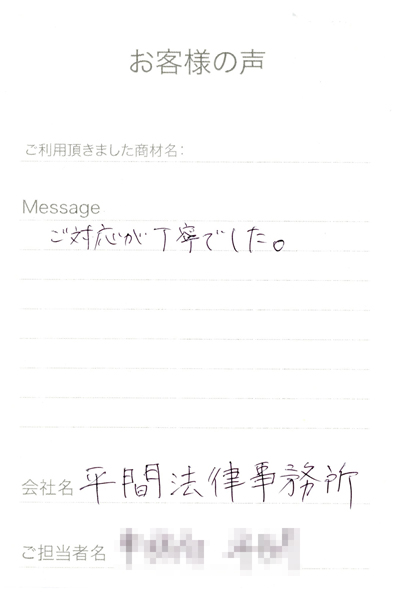 お客様の声
ご利用頂きました商材名:
Message
ご対応が丁寧でした。
会社名 平間法律事務所
ご担当者名